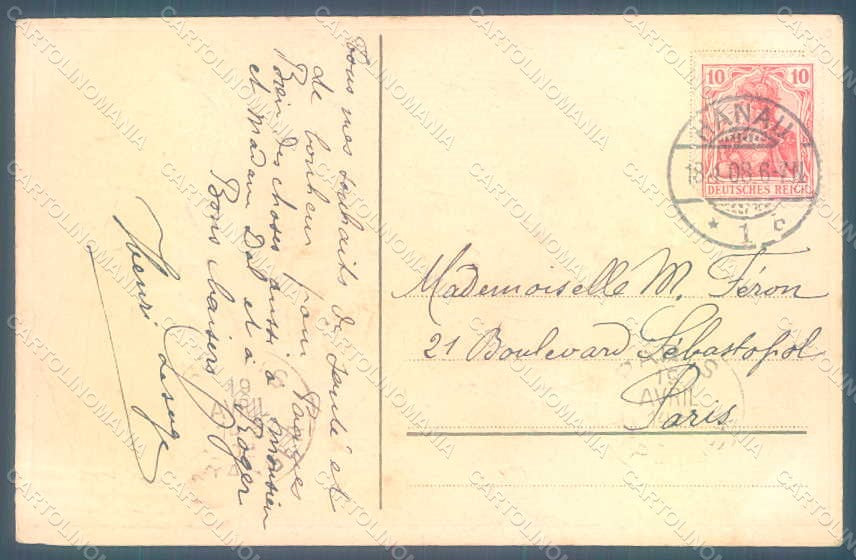 Tous mes souhaits de santé et
de bonheur pour Pâques
Bien des choses aussi à monsieur
et Madame Dat et à Roger
Bons baisers
Henri Lesage
10 10
DEUTSCHES REICH
HANAU
18.4.08.6-7N.
* 1 c
Mademoiselle M. Féron
21 Boulevard Sébastopol
Paris
PARIS
19
AVRIL
19
AVRIL
CARTOLINOMANIA